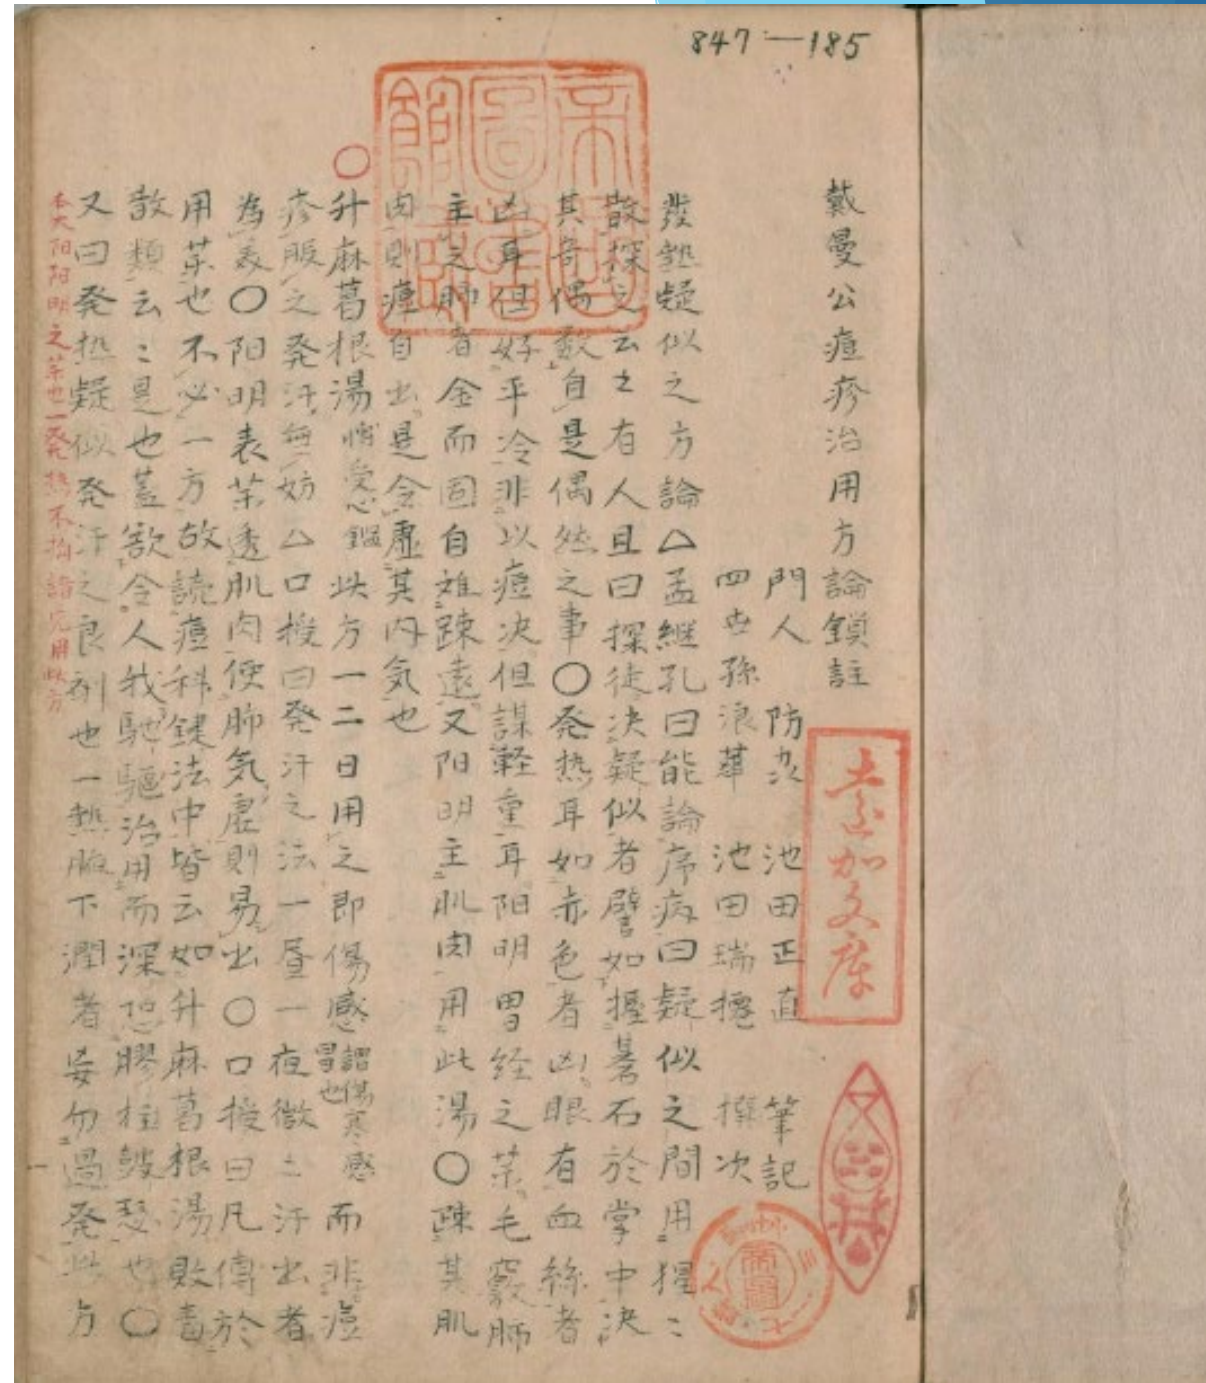 847-185
戴曼公痘疹治用方論鎖註
門人 防次 池田正直 筆記
四世孫浪華 池田瑞 撰次
發熱疑似之方論△孟継孔曰能論序病曰疑似之間用猩〻
散探之云〻有人且曰探徒决疑似者譬如握碁石於掌中决
其奇偶数自是偶然之事〇発热耳如赤色者凶眼有血絲者
凶耳但好平冷非以痘决但謀軽重耳阳明胃経之薬毛竅肺
主之肺者金而固自雖踈遠又阳明主肌肉用此湯〇踈其肌
肉則痘自出是令虚其内気也
升麻葛根湯 此方一二日用之即傷感謂傷寒感冒也而非痘
疹服之発汗無妨△口授曰発汗之法一昼一夜微〻汗出者
為表〇阳明表薬透肌肉使肺気虚則易出〇口授曰凡傳於
用薬也不必一方故読痘科鍵法中皆云如升麻葛根湯敗毒
散類云〻是也蓋欲令人我馳驅治用而深恐膠柱鼓瑟也〇
又曰発热疑似発汗之良剤也一热服下潤者妄勿過発此方
本大阳阳明之薬也一発热不拘諸症用此方
帝国図書館藏